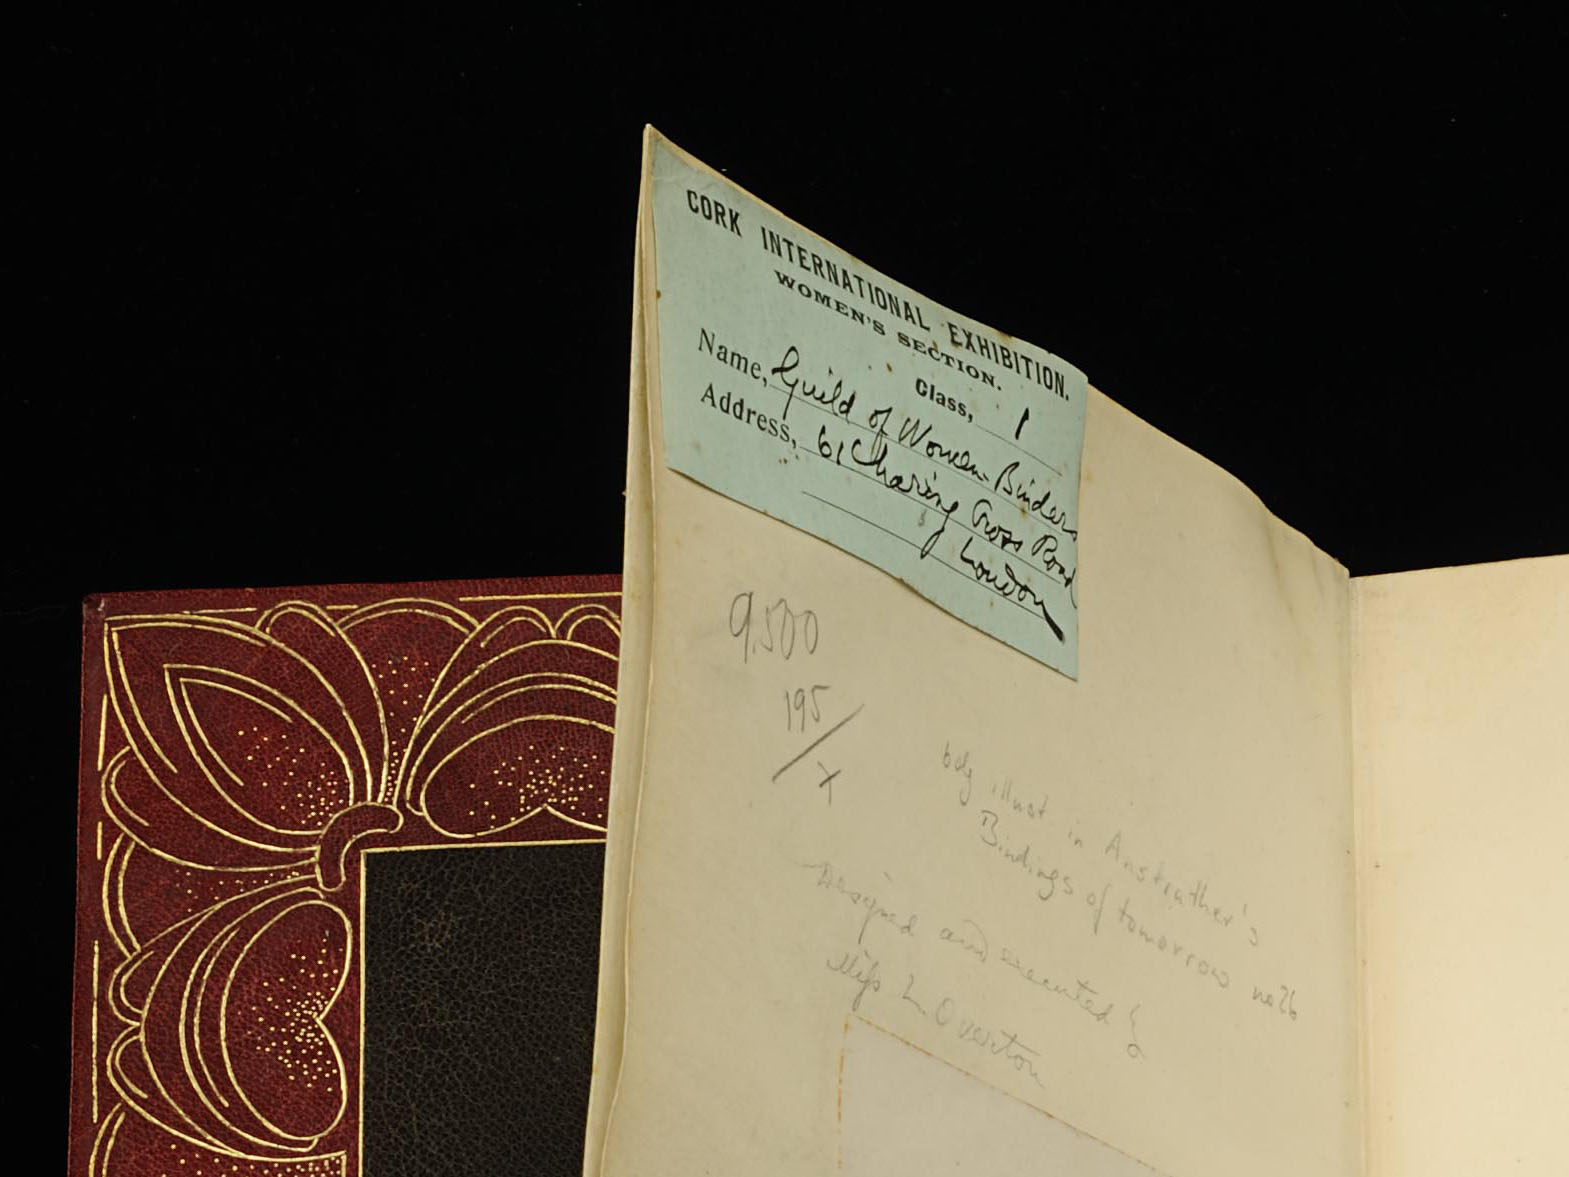 CORK INTERNATIONAL EXHIBITION.
WOMEN'S SECTION.
Class, 1
Name, Guild of Women-Binders
Address, 61 Charing Cross Road
London
9,500
195/x
bdg illust in Anstruther's
Bindings of tomorrow no 26
Designed and executed by
Miss L Overton